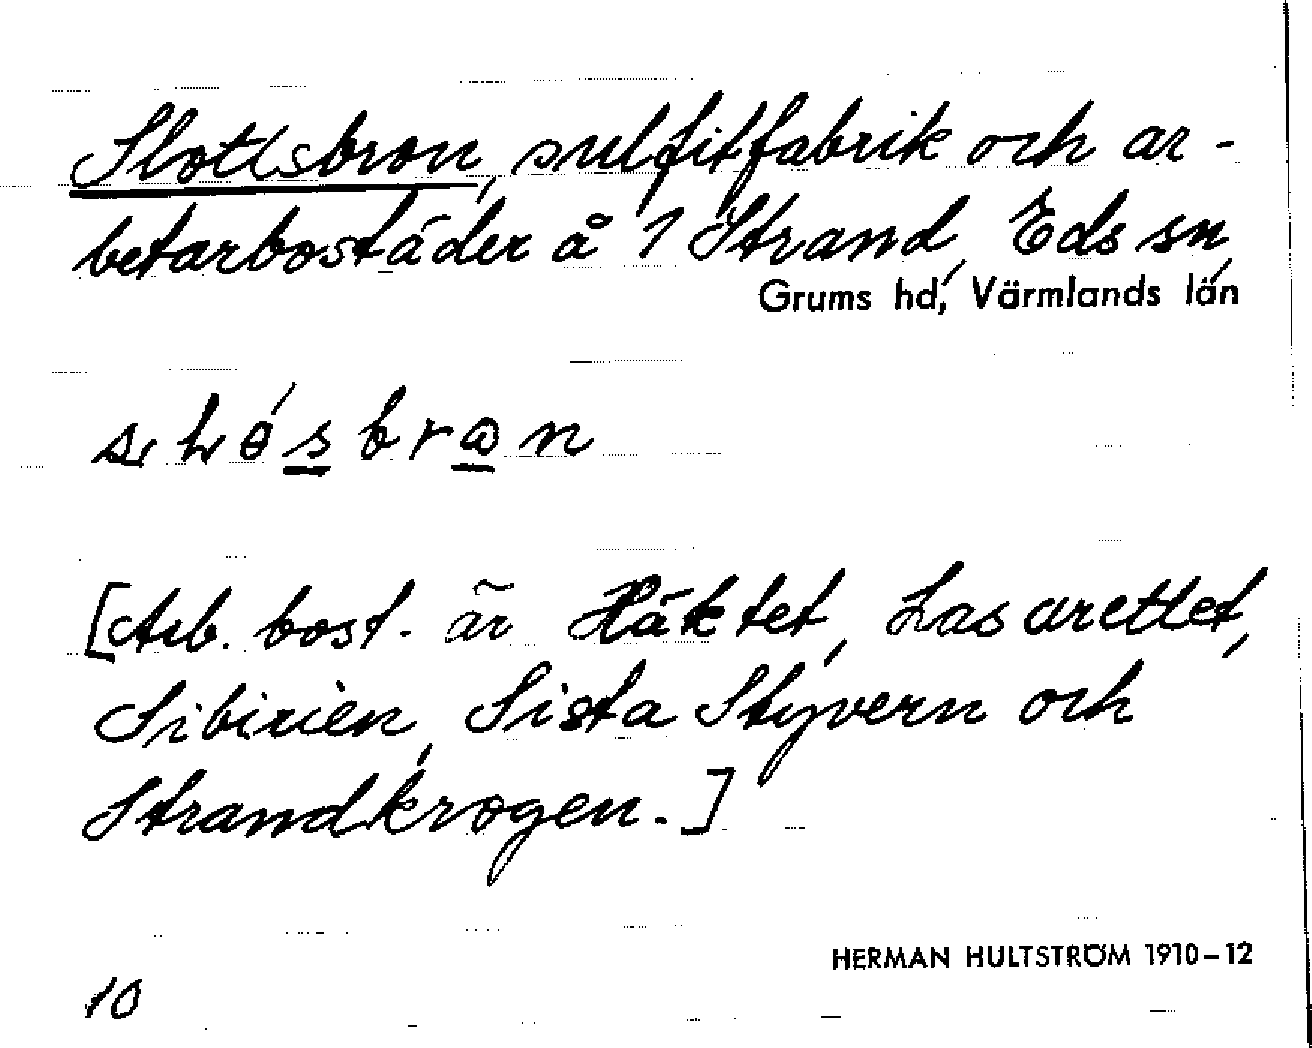 Slottsbron, sulfitfabrik och ar-
betarbostäder å 1 Strand, Eds sn,
Grums hd, Värmlands län
[Arb. bost. är Häktet, Lasarettet,
Sibirien, Sista Styvern och
Strandkrogen.]
HERMAN HULTSTRÖM 1910-12
10